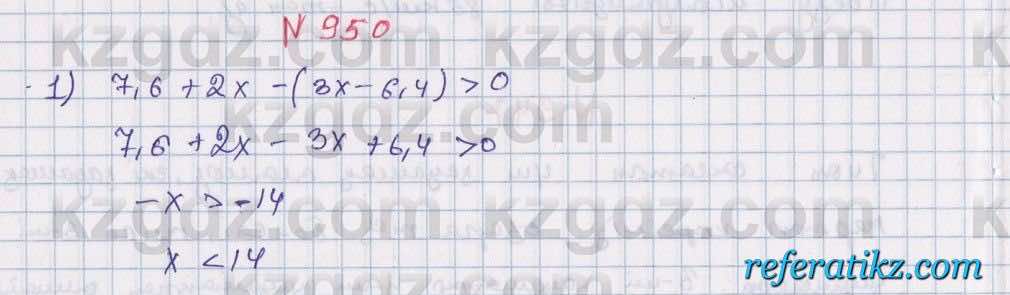 N 950
1) 7,6 + 2x - (3x - 6,4) > 0
7,6 + 2x - 3x + 6,4 > 0
-x > -14
x < 14
kzgdz.com
kzgdz.com
kzgdz.com
kzgdz.com
kzgdz.com
referatikz.com